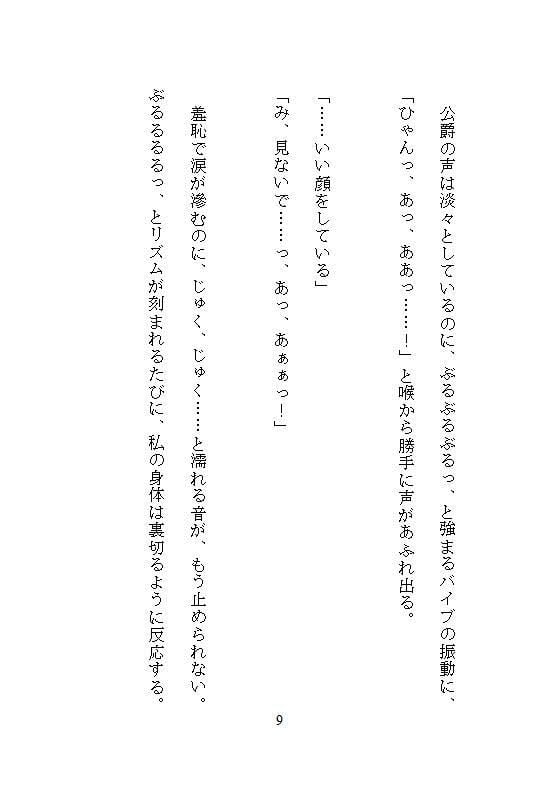 公爵の声は淡々としているのに、ぶるぶるぶるっ、と強まるバイブの振動に、
「ひゃんっ、あっ、ああっ……！」と喉から勝手に声があふれ出る。
「……いい顔をしている」
「み、見ないで……っ、あっ、あぁぁっ！」
羞恥で涙が滲むのに、じゅく、じゅく……と濡れる音が、もう止められない。
ぶるるるるっ、とリズムが刻まれるたびに、私の身体は裏切るように反応する。
9